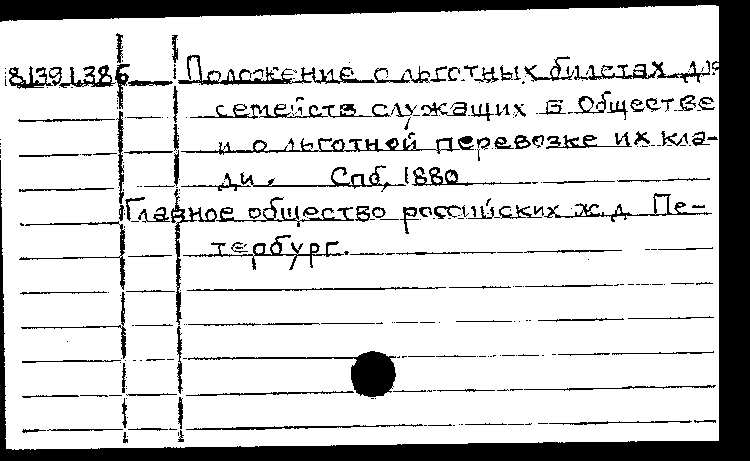 81391.386 Положение о льготных билетах для
семейств служащих в Обществе
и о льготной перевозке их кла-
ди. Спб, 1880.
Главное общество российских ж.д. Пе-
тербург.